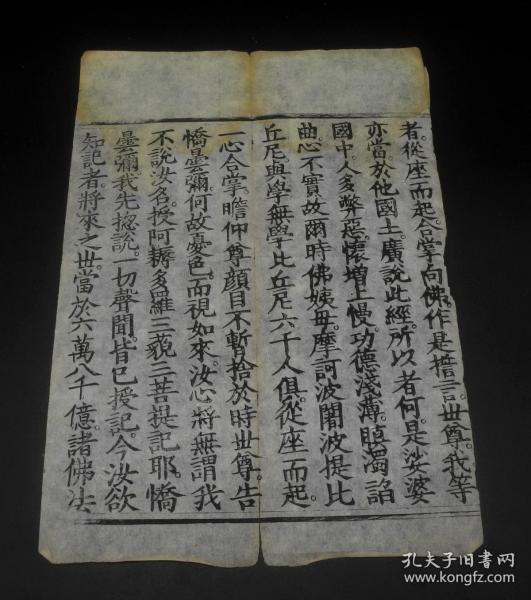 者從座而起。合掌向佛。作是誓言。世尊。我等
亦當於他國土。廣說此經。所以者何。是娑婆
國中。人多弊惡。懷增上慢。功德淺薄。瞋濁諂
曲。心不實故。爾時佛姨母。摩訶波闍波提比
丘尼。與學無學比丘尼。六千人俱。從座而起。
一心合掌。瞻仰尊顏。目不暫捨。於時世尊。告
憍曇彌。何故憂色。而視如來。汝心將無謂我
不說汝名。授阿耨多羅三藐三菩提記耶。憍
曇彌。我先揔說。一切聲聞。皆已授記。今汝欲
知記者。將來之世。當於六萬八千億。諸佛法
孔夫子旧書网
www.kongfz.com